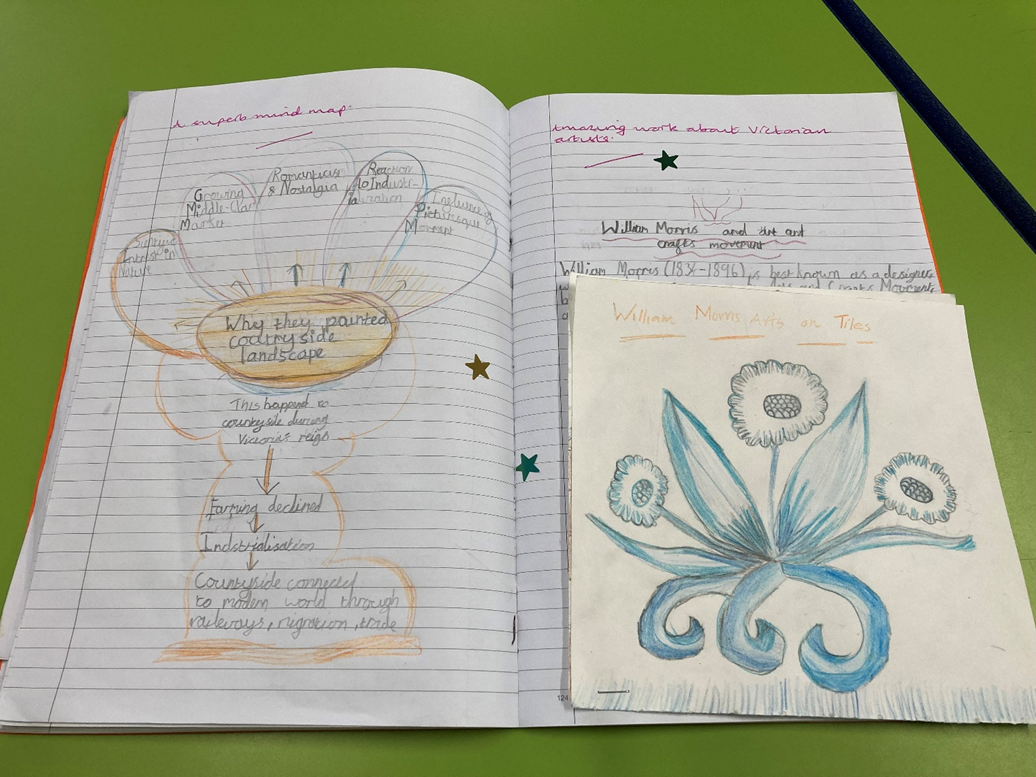 A superb mind map.
Scientific
Interest in
Nature
Growing
Middle-Class
Market
Romanticism
& Nostalgia
Reaction
to Industr-
ialization
Influence of
Picturesque
Movement
Why they painted
coutryside
landscape
This happend to
countryside during
Victorias reign
Farming declined
Indstrialisation
Countryside connected
to modern world through
railways, migration, trade
Amazing work about Victorian
artists.
William Morris and art
crafts movement
William Morris (1834-1896), is best known as a designer
and Crafts Movement
William Morris Arts on Tiles
124